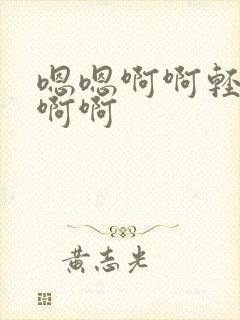 嗯嗯啊啊轻
啊啊
黄志光